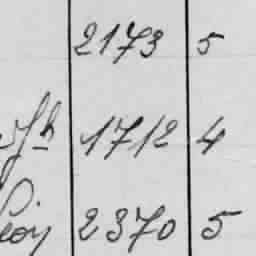 2173 5
1712 4
2370 5